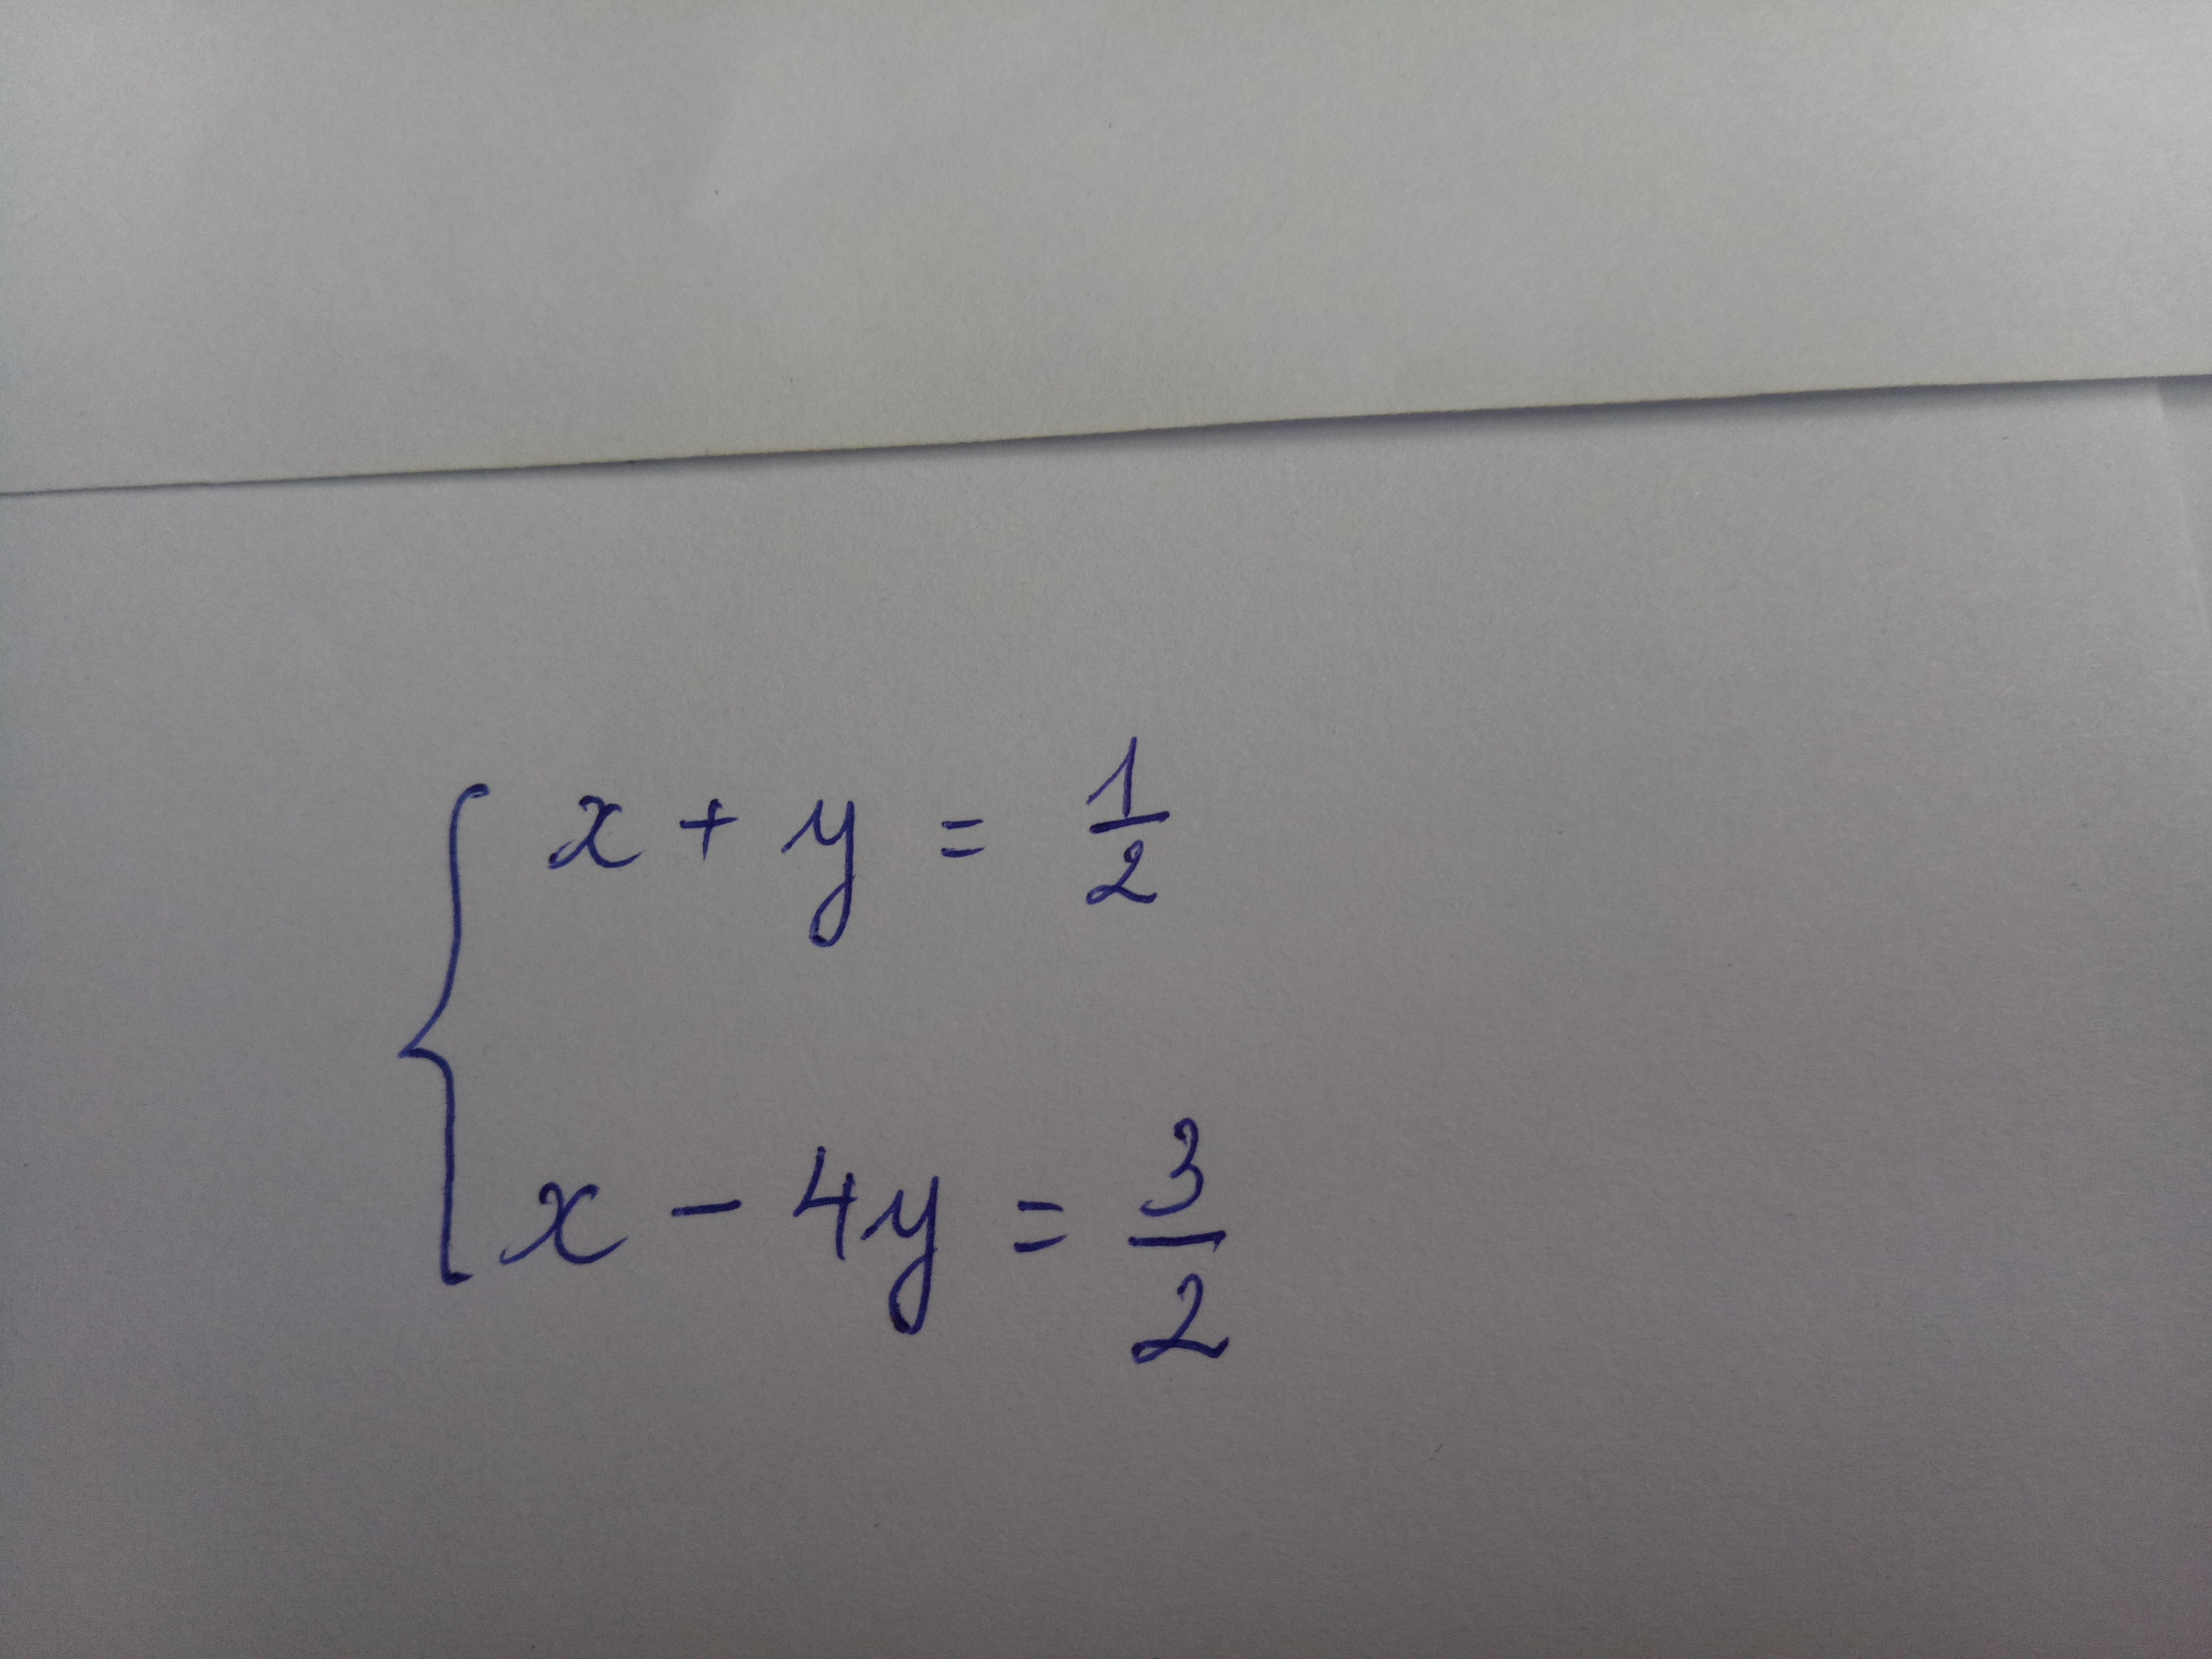 x + y = 1/2
x - 4y = 3/2